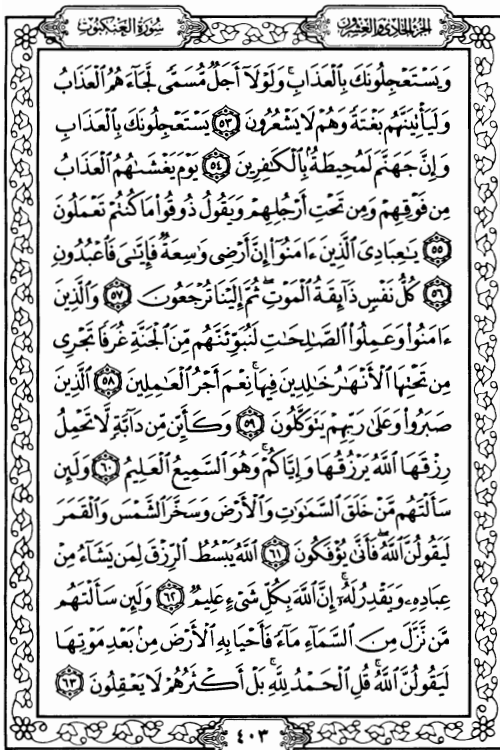 الجزء الحادي والعشرون
سورة العنكبوت
وَيَسْتَعْجِلُونَكَ بِالْعَذَابِ ۚ وَلَوْلَا أَجَلٌ مُّسَمًّى لَّجَاءَهُمُ الْعَذَابُ
وَلَيَأْتِيَنَّهُم بَغْتَةً وَهُمْ لَا يَشْعُرُونَ ٥٣ يَسْتَعْجِلُونَكَ بِالْعَذَابِ
وَإِنَّ جَهَنَّمَ لَمُحِيطَةٌ بِالْكَٰفِرِينَ ٥٤ يَوْمَ يَغْشَىٰهُمُ الْعَذَابُ
مِن فَوْقِهِمْ وَمِن تَحْتِ أَرْجُلِهِمْ وَيَقُولُ ذُوقُوا۟ مَا كُنتُمْ تَعْمَلُونَ
٥٥ يَٰعِبَادِىَ الَّذِينَ ءَامَنُوٓا۟ إِنَّ أَرْضِى وَٰسِعَةٌ فَإِيَّٰىَ فَاعْبُدُونِ
٥٦ كُلُّ نَفْسٍ ذَآئِقَةُ الْمَوْتِ ۖ ثُمَّ إِلَيْنَا تُرْجَعُونَ ٥٧ وَالَّذِينَ
ءَامَنُوا۟ وَعَمِلُوا۟ الصَّٰلِحَٰتِ لَنُبَوِّئَنَّهُم مِّنَ الْجَنَّةِ غُرَفًا تَجْرِى
مِن تَحْتِهَا الْأَنْهَٰرُ خَٰلِدِينَ فِيهَا ۚ نِعْمَ أَجْرُ الْعَٰمِلِينَ ٥٨ الَّذِينَ
صَبَرُوا۟ وَعَلَىٰ رَبِّهِمْ يَتَوَكَّلُونَ ٥٩ وَكَأَيِّن مِّن دَآبَّةٍ لَّا تَحْمِلُ
رِزْقَهَا اللَّهُ يَرْزُقُهَا وَإِيَّاكُمْ ۚ وَهُوَ السَّمِيعُ الْعَلِيمُ ٦٠ وَلَئِن
سَأَلْتَهُم مَّنْ خَلَقَ السَّمَٰوَٰتِ وَالْأَرْضَ وَسَخَّرَ الشَّمْسَ وَالْقَمَرَ
لَيَقُولُنَّ اللَّهُ ۖ فَأَنَّىٰ يُؤْفَكُونَ ٦١ اللَّهُ يَبْسُطُ الرِّزْقَ لِمَن يَشَآءُ مِنْ
عِبَادِهِۦ وَيَقْدِرُ لَهُۥٓ ۚ إِنَّ اللَّهَ بِكُلِّ شَىْءٍ عَلِيمٌ ٦٢ وَلَئِن سَأَلْتَهُم
مَّن نَّزَّلَ مِنَ السَّمَآءِ مَآءً فَأَحْيَا بِهِ الْأَرْضَ مِنۢ بَعْدِ مَوْتِهَا
لَيَقُولُنَّ اللَّهُ ۚ قُلِ الْحَمْدُ لِلَّهِ ۚ بَلْ أَكْثَرُهُمْ لَا يَعْقِلُونَ ٦٣
٤٠٣